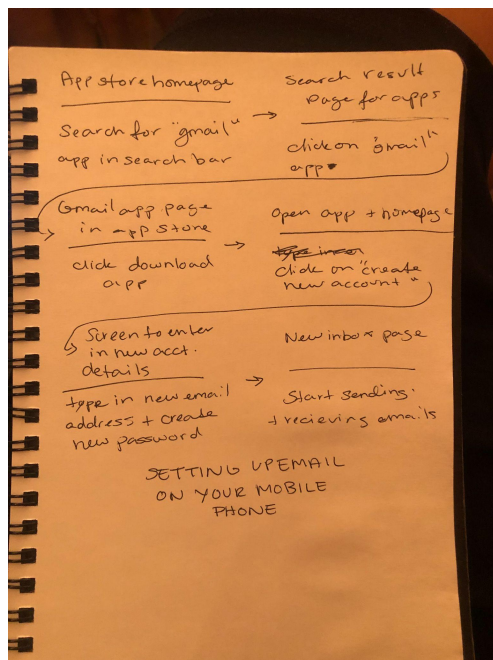 App store homepage
Search for "gmail"
app in search bar
Search result
page for apps
click on "gmail"
app
Gmail app page
in app store
click download
app
Open app + homepage
click on "create
new account"
Screen to enter
in new acct.
details
type in new email
address + create
new password
New inbox page
Start sending
+ recieving emails
SETTING UP EMAIL
ON YOUR MOBILE
PHONE